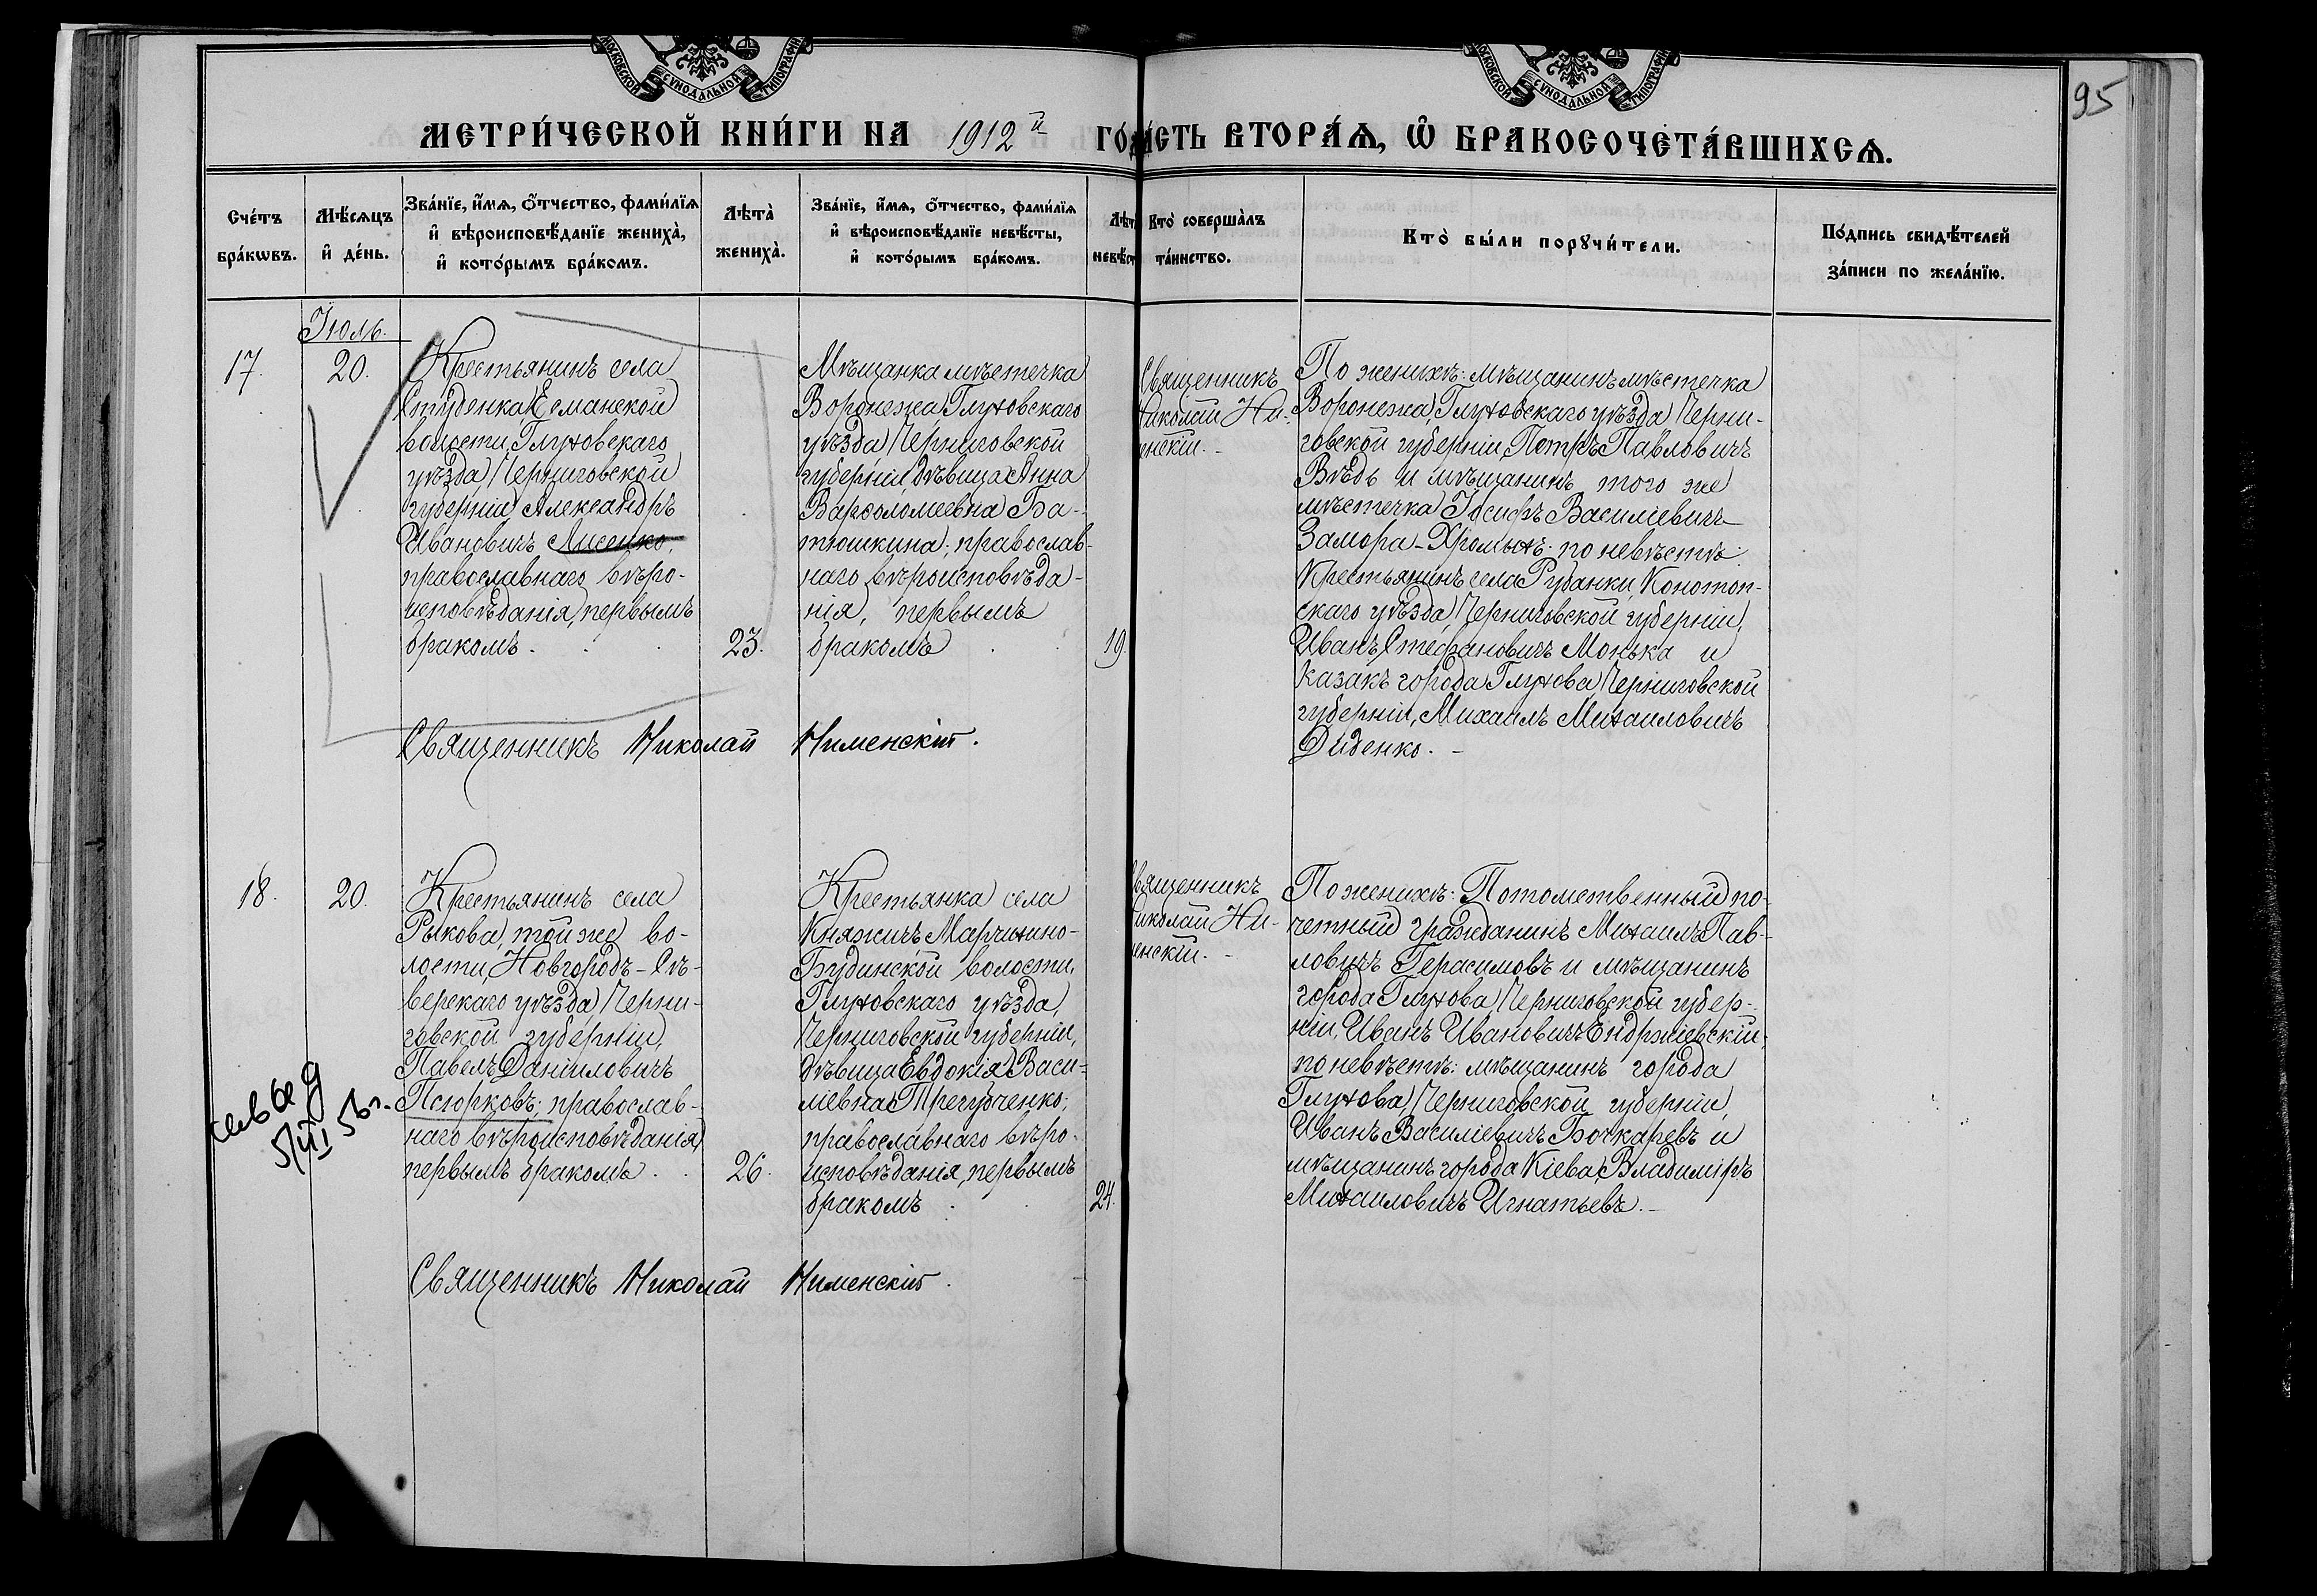 МОСКОВСКОЙ СѴНОДАЛЬНОЙ ТИПОГРАФІИ
МОСКОВСКОЙ СѴНОДАЛЬНОЙ ТИПОГРАФІИ
95
МЕТРИ́ЧЕСКОЙ КНИ́ГИ НА 1912й ГО́Д
А́СТЬ ВТОРА́Ѧ, Ѽ БРАКОСОЧЕТА́ВШИХСѦ.
Сче́тъ
бра́кѡвъ.
Мѣ́сѧцъ
и҆ де́нь.
Зва́нїе, и҆́мѧ, ѻ҆́тчество, фами́лїѧ
и҆ вѣроисповѣ́данїе жениха̀,
и҆ кото́рымъ бра́комъ.
Лѣта̀
жениха̀.
Зва́нїе, и҆́мѧ, ѻ҆́тчество, фами́лїѧ
и҆ вѣроисповѣ́данїе невѣ́сты,
и҆ кото́рымъ бра́комъ.
Лѣта
невѣст
Кто̀ соверша́лъ
та́инство.
Кто̀ бы́ли порꙋчи́тели.
По́дпись свидѣ́телей
за́писи по жела́нїю.
Іюль.
17.
20.
Крестьянинъ села
Студенка, Есманской
волости, Глуховскаго
уѣзда, Черниговской
губерніи, Александръ
Ивановичъ Лисенко,
православнаго вѣро-
исповѣданія, первымъ
бракомъ.
23.
Мѣщанка мѣстечка
Воронежа, Глуховскаго
уѣзда, Черниговской
губерніи, дѣвица Анна
Варфоломеевна Ба-
тюшкина, православ-
наго вѣроисповѣда-
нія, первымъ
бракомъ
19.
Священникъ
Николай Ни-
енскій. -
По женихѣ: мѣщанинъ мѣстечка
Воронежа, Глуховскаго уѣзда, Черни-
говской губерніи, Петръ Павловичъ
Вѣдь и мѣщанинъ того же
мѣстечка Іосифъ Василіевичъ
Замора-Хромыхъ; по невѣстѣ:
Крестьянинъ села Рубанки, Конотоп-
скаго уѣзда, Черниговской губерніи,
Иванъ Стефановичъ Монька и
казакъ города Глухова, Черниговской
губерніи, Михаилъ Михаиловичъ
Диденко. -
Священникъ Николай Нименскій.
18.
20.
Крестьянинъ села
Рыкова, той же во-
лости, Новгородъ-Сѣ-
верскаго уѣзда, Черни-
говской губерніи,
Павелъ Даніиловичъ
Псюрковъ; православ-
наго вѣроисповѣданія,
первымъ бракомъ.
26.
5/VII 56г.
Крестьянка села
Княжичъ, Марчихино-
Будинской волости,
Глуховскаго уѣзда,
Черниговской губерніи,
дѣвица Евдокія Васи-
ліевна Трегубченко;
православнаго вѣро-
исповѣданія, первымъ
бракомъ
24.
Священникъ
Николай Ни-
енскій. -
По женихѣ: Потомственный по-
четный гражданинъ Михаилъ Пав-
ловичъ Герасимовъ и мѣщанинъ
города Глухова, Черниговской губер-
ніи, Иванъ Ивановичъ Ендржіевскій;
по невѣстѣ: мѣщанинъ города
Глухова, Черниговской губерніи,
Иванъ Василіевичъ Бочкаревъ и
мѣщанинъ города Кіева Владиміръ
Михаиловичъ Игнатьевъ. -
Священникъ Николай Нименскій.